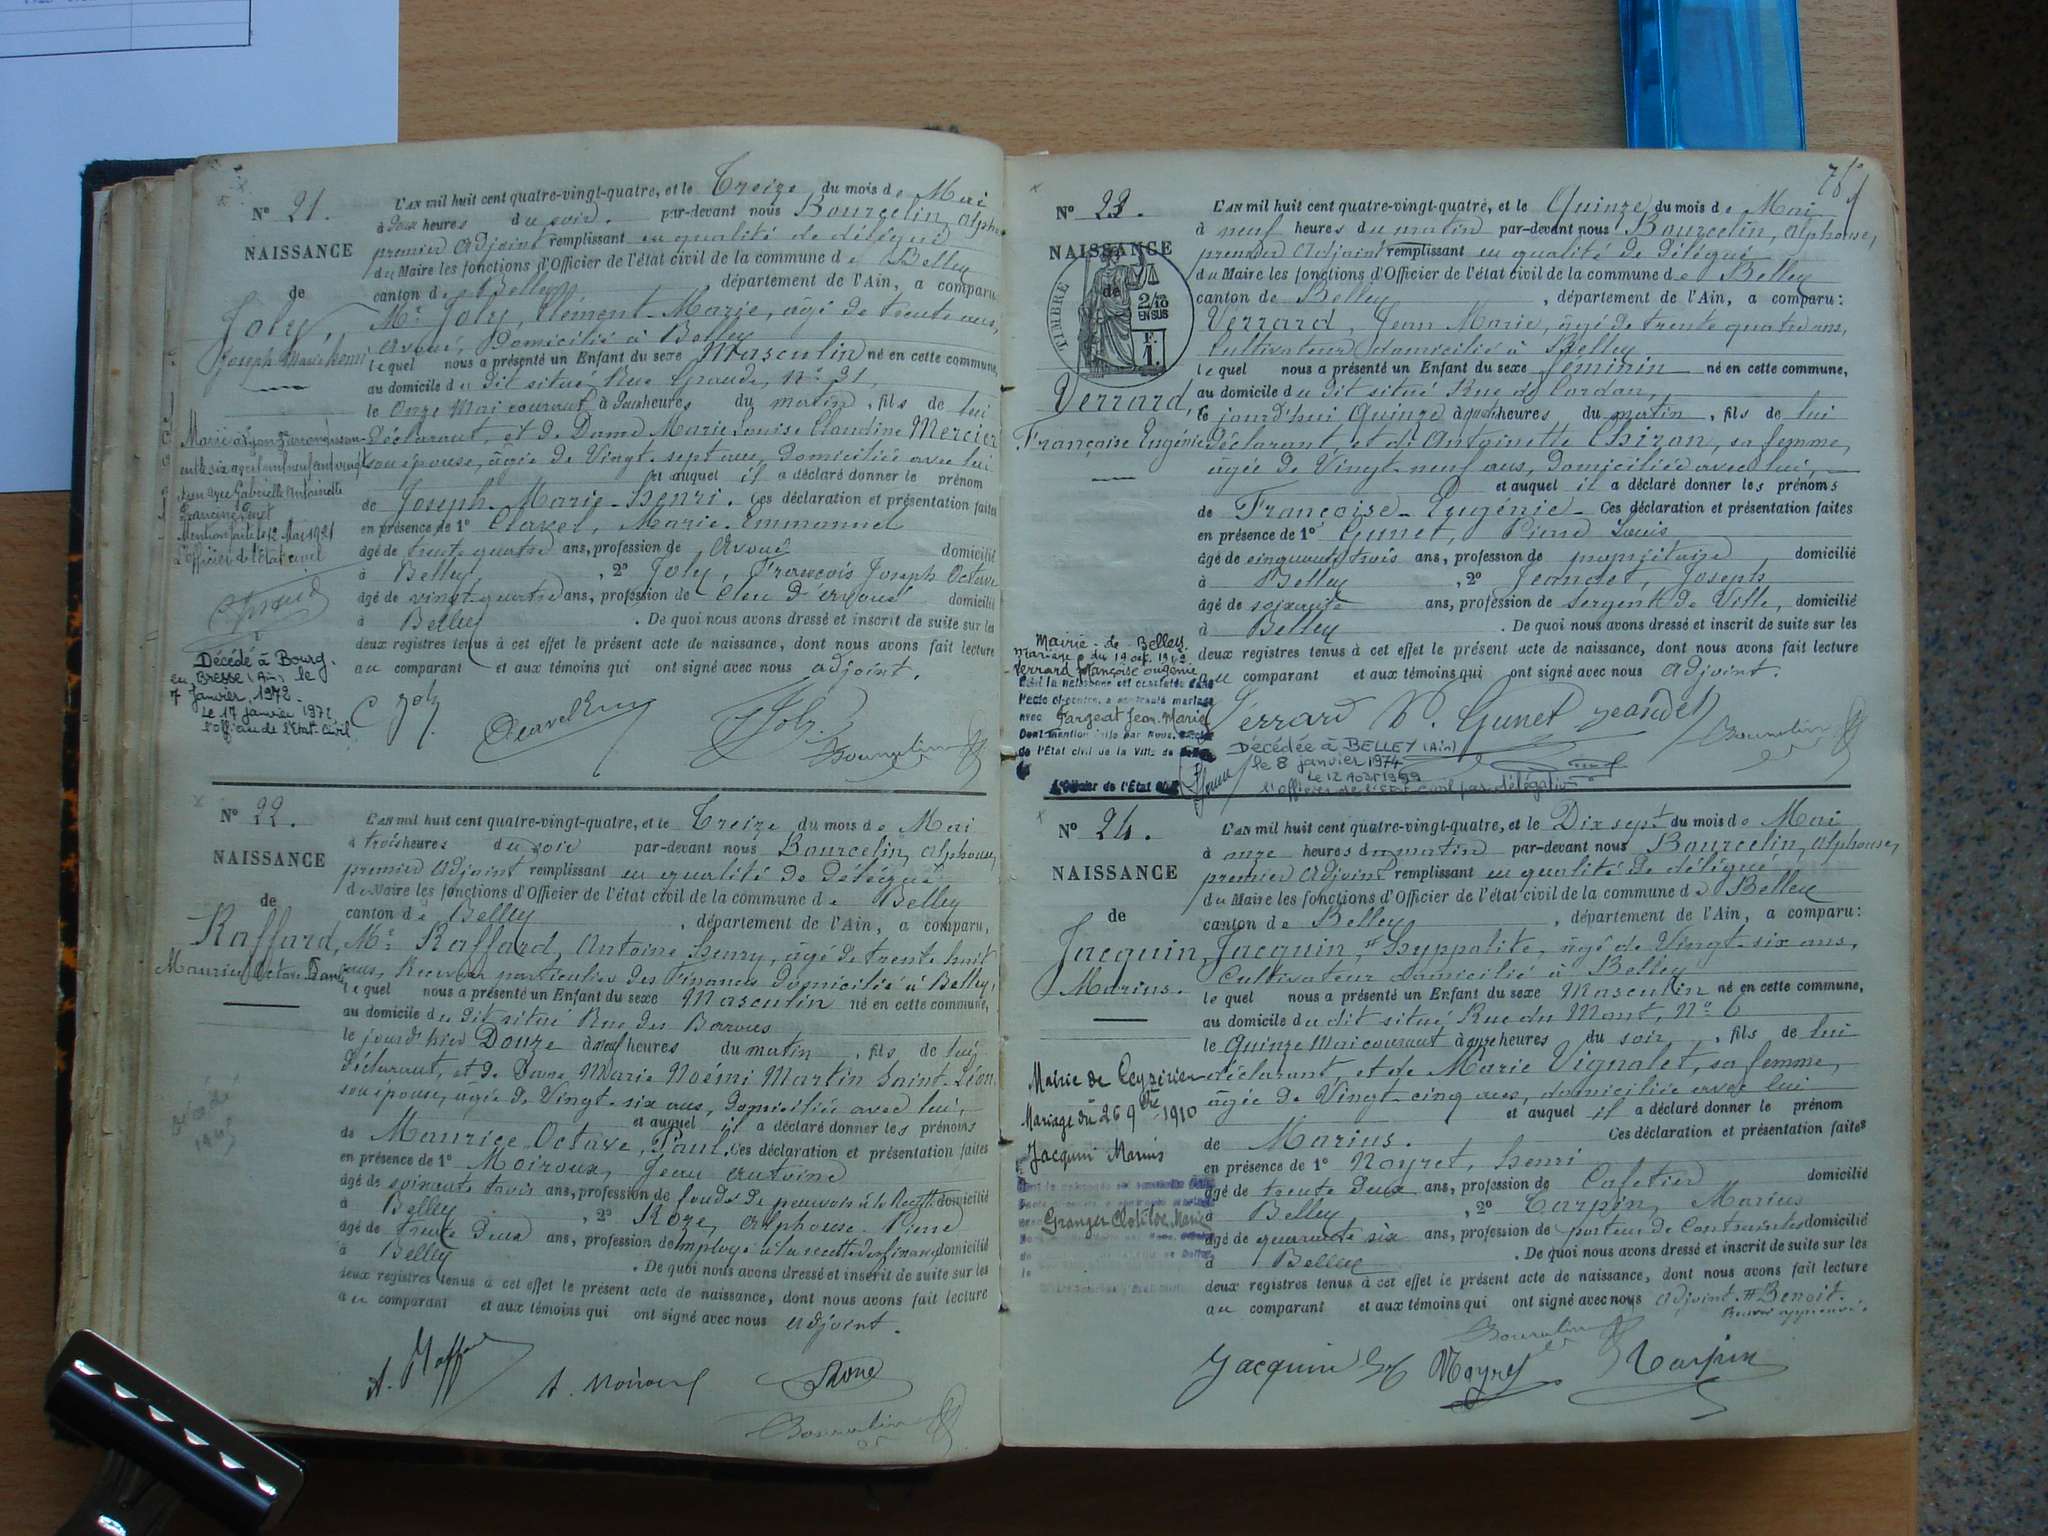 N° 21.
NAISSANCE
de
Joly,
Joseph Marie Henri
L'AN mil huit cent quatre-vingt-quatre, et le Treize du mois de Mai
à Deux heures du soir. par-devant nous Bourcelin, Alphonse
premier adjoint remplissant en qualité de délégué
du Maire les fonctions d'Officier de l'état civil de la commune de Belley
canton de Belley département de l'Ain, a comparu
Mr Joly, Clément-Marie, âgé de trente ans,
Avoué, Domicilié à Belley
lequel nous a présenté un Enfant du sexe Masculin né en cette commune,
au domicile du dit situé Rue Grande, N° 31
le Onze Mai courant à Deux heures du matin, fils de lui
déclarant, et de Dame Marie Louise Claudine Mercier
son épouse, âgée de Vingt-sept ans, domiciliée avec lui
et auquel il a déclaré donner le prénom
de Joseph-Marie-Henri. Ces déclaration et présentation faites
en présence de 1° Clavel, Marie-Emmanuel
âgé de trente quatre ans, profession de Avoué domicilié
à Belley, 2° Joly, François Joseph Octave
âgé de vingt-quatre ans, profession de Clerc d'avoué domicilié
à Belley. De quoi nous avons dressé et inscrit de suite sur les
deux registres tenus à cet effet le présent acte de naissance, dont nous avons fait lecture
au comparant et aux témoins qui ont signé avec nous adjoint.
Marié à Lyon
Gabrielle Antoinette
Mention faite le 12 Mai 1921
L'officier de l'Etat civil
Décédé à Bourg-
en-Bresse (Ain) le
7 Janvier 1972
Le 17 janvier 1972
l'officier de l'Etat-Civil
C Joly
Joly
N° 22.
NAISSANCE
de
Raffard,
Maurice Octave Paul
L'AN mil huit cent quatre-vingt-quatre, et le Treize du mois de Mai
à trois heures du soir par-devant nous Bourcelin, Alphonse,
premier adjoint remplissant en qualité de délégué
du Maire les fonctions d'Officier de l'état civil de la commune de Belley
canton de Belley, département de l'Ain, a comparu,
Mr Raffard, Antoine Henry, âgé de trente huit
ans, Receveur particulier des Finances domicilié à Belley,
lequel nous a présenté un Enfant du sexe Masculin né en cette commune,
au domicile du dit situé Rue des Barons
le jourd'hier Douze à neuf heures du matin, fils de lui
déclarant, et de Dame Marie Noémi Martin Saint-Léon,
son épouse, âgée de Vingt-six ans, domiciliée avec lui,
et auquel il a déclaré donner les prénoms
de Maurice Octave, Paul. Ces déclaration et présentation faites
en présence de 1° Moiroux, Jean Antoine
âgé de soixante trois ans, profession de fondé de pouvoirs à la Recette domicilié
à Belley, 2° Roze, Alphonse Pierre
âgé de trente deux ans, profession de employé à la recette des finances domicilié
à Belley. De quoi nous avons dressé et inscrit de suite sur les
deux registres tenus à cet effet le présent acte de naissance, dont nous avons fait lecture
au comparant et aux témoins qui ont signé avec nous adjoint.
A. Raffard
N° 23.
NAISSANCE
de
TIMBRE
2/10
EN SUS
F.
1.
Verrard,
Françoise Eugénie
L'AN mil huit cent quatre-vingt-quatre, et le Quinze du mois de Mai
à neuf heures du matin par-devant nous Bourcelin, Alphonse,
premier adjoint remplissant en qualité de délégué
du Maire les fonctions d'Officier de l'état civil de la commune de Belley
canton de Belley, département de l'Ain, a comparu:
Verrard, Jean Marie, âgé de trente quatre ans,
Cultivateur domicilié à Belley
lequel nous a présenté un Enfant du sexe féminin né en cette commune,
au domicile du dit situé Rue de Cordon,
le jourd'hui Quinze à quatre heures du matin, fils de lui
déclarant et de Antoinette Chiron, sa femme,
âgée de Vingt-neuf ans, domiciliée avec lui,
et auquel il a déclaré donner les prénoms
de Françoise-Eugénie- Ces déclaration et présentation faites
en présence de 1° Gunet, Pierre Louis
âgé de cinquante trois ans, profession de propriétaire, domicilié
à Belley, 2° Jeandet, Joseph
âgé de soixante ans, profession de Sergent de Ville, domicilié
à Belley. De quoi nous avons dressé et inscrit de suite sur les
deux registres tenus à cet effet le présent acte de naissance, dont nous avons fait lecture
au comparant et aux témoins qui ont signé avec nous adjoint.
Mairie de Belley
mariage du 19 oct. 1912
Verrard françoise Eugénie
dont la naissance est constatée dans
l'acte ci-contre, a contracté mariage
avec Fargeat Jean-Marie
Dont mention faite par Nous, officier
de l'État civil de la Ville de Belley
L'Officier de l'État Civil
Verrard P. Gunet Jeandet
Décédée à BELLEY (Ain)
le 8 janvier 1974
Le 12 Août 1999
l'officier de l'état civil par délégation
N° 24.
NAISSANCE
de
Jacquin,
Marius.
L'AN mil huit cent quatre-vingt-quatre, et le Dix sept du mois de Mai
à onze heures du matin par-devant nous Bourcelin, Alphonse,
premier adjoint remplissant en qualité de délégué
du Maire les fonctions d'Officier de l'état civil de la commune de Belley
canton de Belley, département de l'Ain, a comparu:
Jacquin, # Hyppolite, âgé de Vingt-six ans,
Cultivateur domicilié à Belley
lequel nous a présenté un Enfant du sexe Masculin né en cette commune,
au domicile du dit situé Rue du Mont, N° 6
le Quinze Mai courant à onze heures du soir, fils de lui
déclarant, et de Marie Vignalet, sa femme,
âgée de Vingt-cinq ans, domiciliée avec lui
et auquel il a déclaré donner le prénom
de Marius. Ces déclaration et présentation faites
en présence de 1° Noyret, Henri
âgé de trente deux ans, profession de Cafetier domicilié
à Belley, 2° Carpin, Marius
âgé de quarante six ans, profession de porteur de contraintes domicilié
à Belley. De quoi nous avons dressé et inscrit de suite sur les
deux registres tenus à cet effet le présent acte de naissance, dont nous avons fait lecture
au comparant et aux témoins qui ont signé avec nous adjoint. # Benoit.
Mairie de Ceyzérieu
Mariage du 26 9bre 1910
Jacquin Marius
Granger Clotilde Marie
Jacquin Noyret Carpin